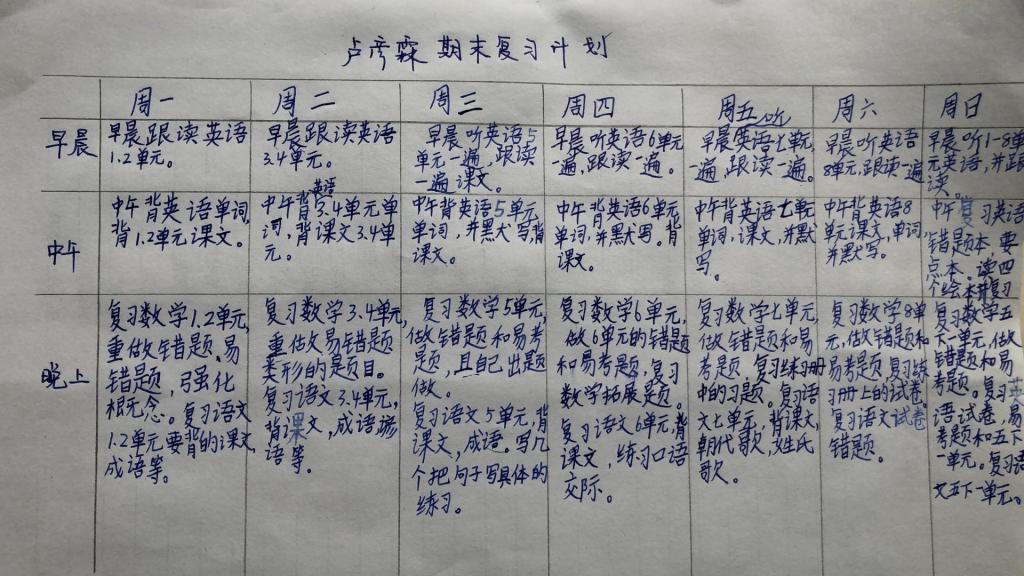 卢彦霖 期末复习计划
周一
周二
周三
周四
周五
周六
周日
早晨
早晨跟读英语
1.2单元。
早晨跟读英语
3.4单元。
早晨听英语5
单元一遍,跟读
一遍课文。
早晨听英语6单元
一遍,跟读一遍。
听
早晨英语七单元
一遍,跟读一遍。
早晨听英语
8单元,跟读一遍
早晨听1-8单
元英语,并跟
读。
中午
中午背英语单词
背1.2单元课文。
英语
中午背3.4单元单
词,背课文3.4单
元。
中午背英语5单元
单词,并默写,背
课文。
中午背英语6单元
单词,并默写。背
课文。
中午背英语七单元
单词,课文,并默
写。
中午背英语8
单元课文,单词
并默写。
中午复习英语
错题本,要
点本。读四
个绘本并复习
晚上
复习数学1.2单元,
重做错题,易
错题,强化
概念。复习语文
1.2单元要背的课文,
成语等。
复习数学3.4单元,
重做易错题
类形的题目。
复习语文3.4单元,
背课文,成语
语等。
复习数学5单元,
做错题和易考
题,且自己出题
做。
复习语文5单元,背
课文,成语。写几
个把句子写具体的
练习。
复习数学6单元,
做6单元的错题
和易考题,复习
数学拓展题。
复习语文6单元,背
课文,练习口语
交际。
复习数学七单元,
做错题和易
考题,复习练习册
中的习题。复习语
文七单元,背课文,
朝代歌,姓氏
歌。
复习数学8单
元,做错题和
易考题,复习练
习册上的试卷
复习语文试卷
错题。
复习数学五
下一单元,做
错题和易
考题。复习英
语试卷,易
考题和五下
一单元。复习语
文五下一单元。